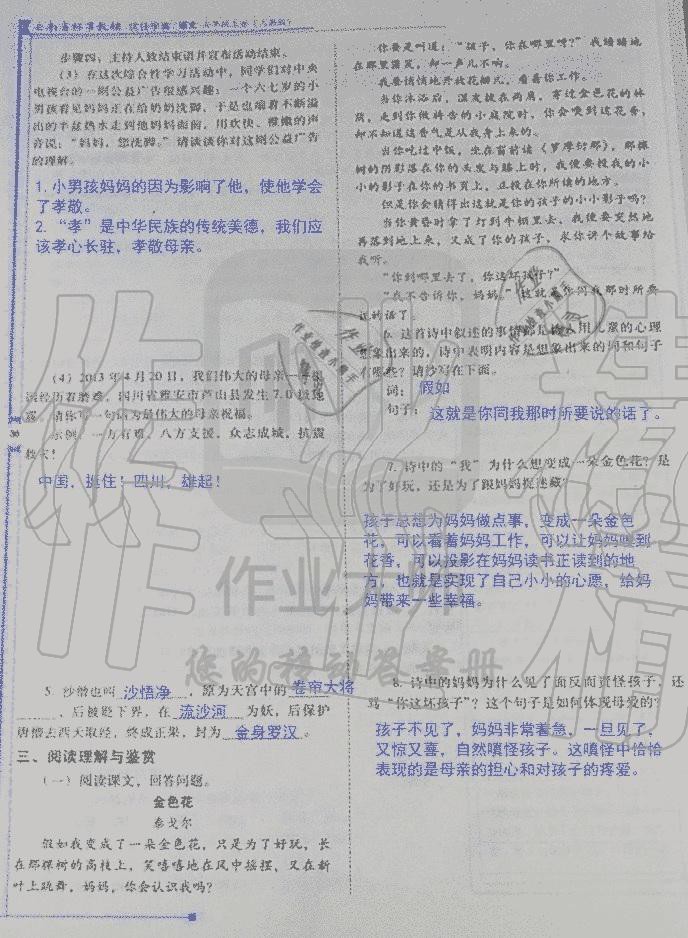 步骤四：主持人致结束语并宣布活动结束。
（3）在这次综合性学习活动中，同学们对中央
电视台的一则公益广告很感兴趣：一个六七岁的小
男孩看见妈妈正在给奶奶洗脚，于是也端着不断溢
出的半盆热水走到他妈妈面前，用欢快、稚嫩的声
音说：“妈妈，您洗脚。”请谈谈你对这则公益广告
的理解。
1. 小男孩妈妈的因为影响了他，使他学会
了孝敬。
2. “孝”是中华民族的传统美德，我们应
该孝心长驻，孝敬母亲。
（4）2013年4月20日，我们伟大的母亲
历着磨难，四川省雅安市芦山县发生7.0级地
震，请你写一句话为最伟大的母亲祝福。
示例：一方有难，八方支援，众志成城，抗震
救灾！
中国，挺住！四川，雄起！
5. 沙僧也叫 沙悟净 ，原为天宫中的 卷帘大将
，后被贬下界，在 流沙河 为妖，后保护
唐僧去西天取经，终成正果，封为 金身罗汉 。
三、阅读理解与鉴赏
（一）阅读课文，回答问题。
金色花
泰戈尔
假如我变成了一朵金色花，只是为了好玩，长
在那棵树的高枝上，笑嘻嘻地在风中摇摆，又在新
叶上跳舞，妈妈，你会认识我吗？
你要是叫道：“孩子，你在哪里呀？”我暗暗地
在那里匿笑，却一声儿不响。
我要悄悄地开放花瓣儿，看着你工作。
当你沐浴后，湿发披在两肩，穿过金色花的林
荫，走到你做祷告的小庭院时，你会嗅到这花香，
却不知道这香气是从我身上来的。
当你吃过中饭，坐在窗前读《罗摩衍那》，那棵
树的阴影落在你的头发与膝上时，我便要投我的小
小的影子在你的书页上，正投在你所读的地方。
但是你会猜得出这就是你的孩子的小小影子吗？
当你黄昏时拿了灯到牛棚里去，我便要突然地
再落到地上来，又成了你的孩子，求你讲个故事给
我听。
“你到哪里去了，你这坏孩子？”
“我不告诉你，妈妈。”这就是你同我那时所要
说的话了。
6. 这首诗中叙述的事情都是诗人用儿童的心理
想象出来的，诗中表明内容是想象出来的词和句子
有哪些？请抄写在下面。
词： 假如
句子： 这就是你同我那时所要说的话了。
7. 诗中的“我”为什么想变成一朵金色花？是
为了好玩，还是为了跟妈妈捉迷藏？
孩子总想为妈妈做点事，变成一朵金色
花，可以看着妈妈工作，可以让妈妈嗅到
花香，可以投影在妈妈读书正读到的地
方，也就是实现了自己小小的心愿，给妈
妈带来一些幸福。
8. 诗中的妈妈为什么见了面反而责怪孩子，还
骂“你这坏孩子”？这个句子是如何体现母爱的？
孩子不见了，妈妈非常着急，一旦见了，
又惊又喜，自然嗔怪孩子。这嗔怪中恰恰
表现的是母亲的担心和对孩子的疼爱。
作业大
您的移动答案册